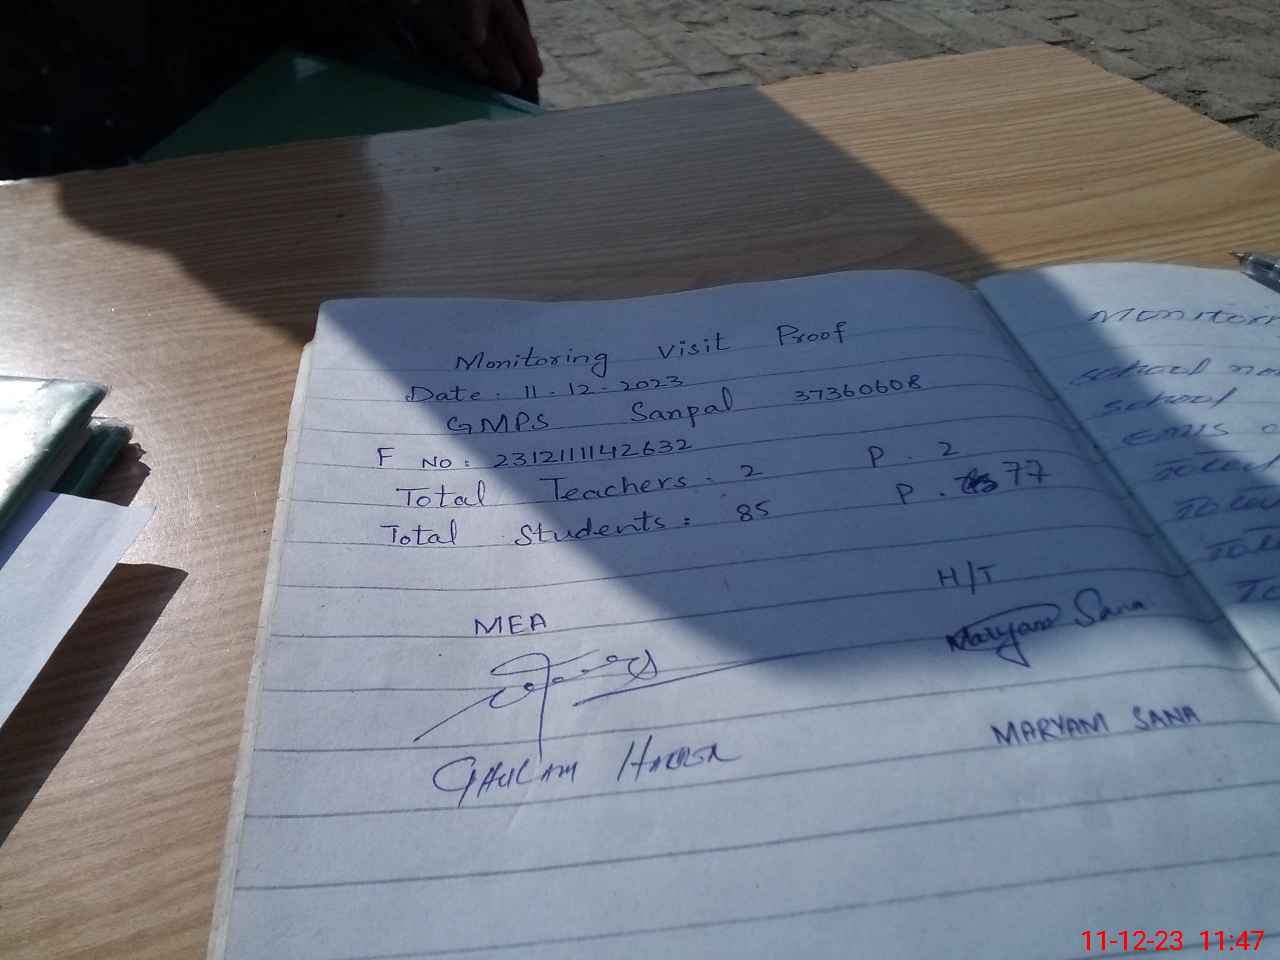 Monitoring Visit Proof
Date: 11.12.2023
GMPS Sanpal 37360608
F No: 2312111142632
Total Teachers: 2 P. 2
Total Students: 85 P. 77
MEA H/T
Maryam Sana
MARYAM SANA
GHULAM
Monitori
School
School
EMIS
Total
11-12-23 11:47